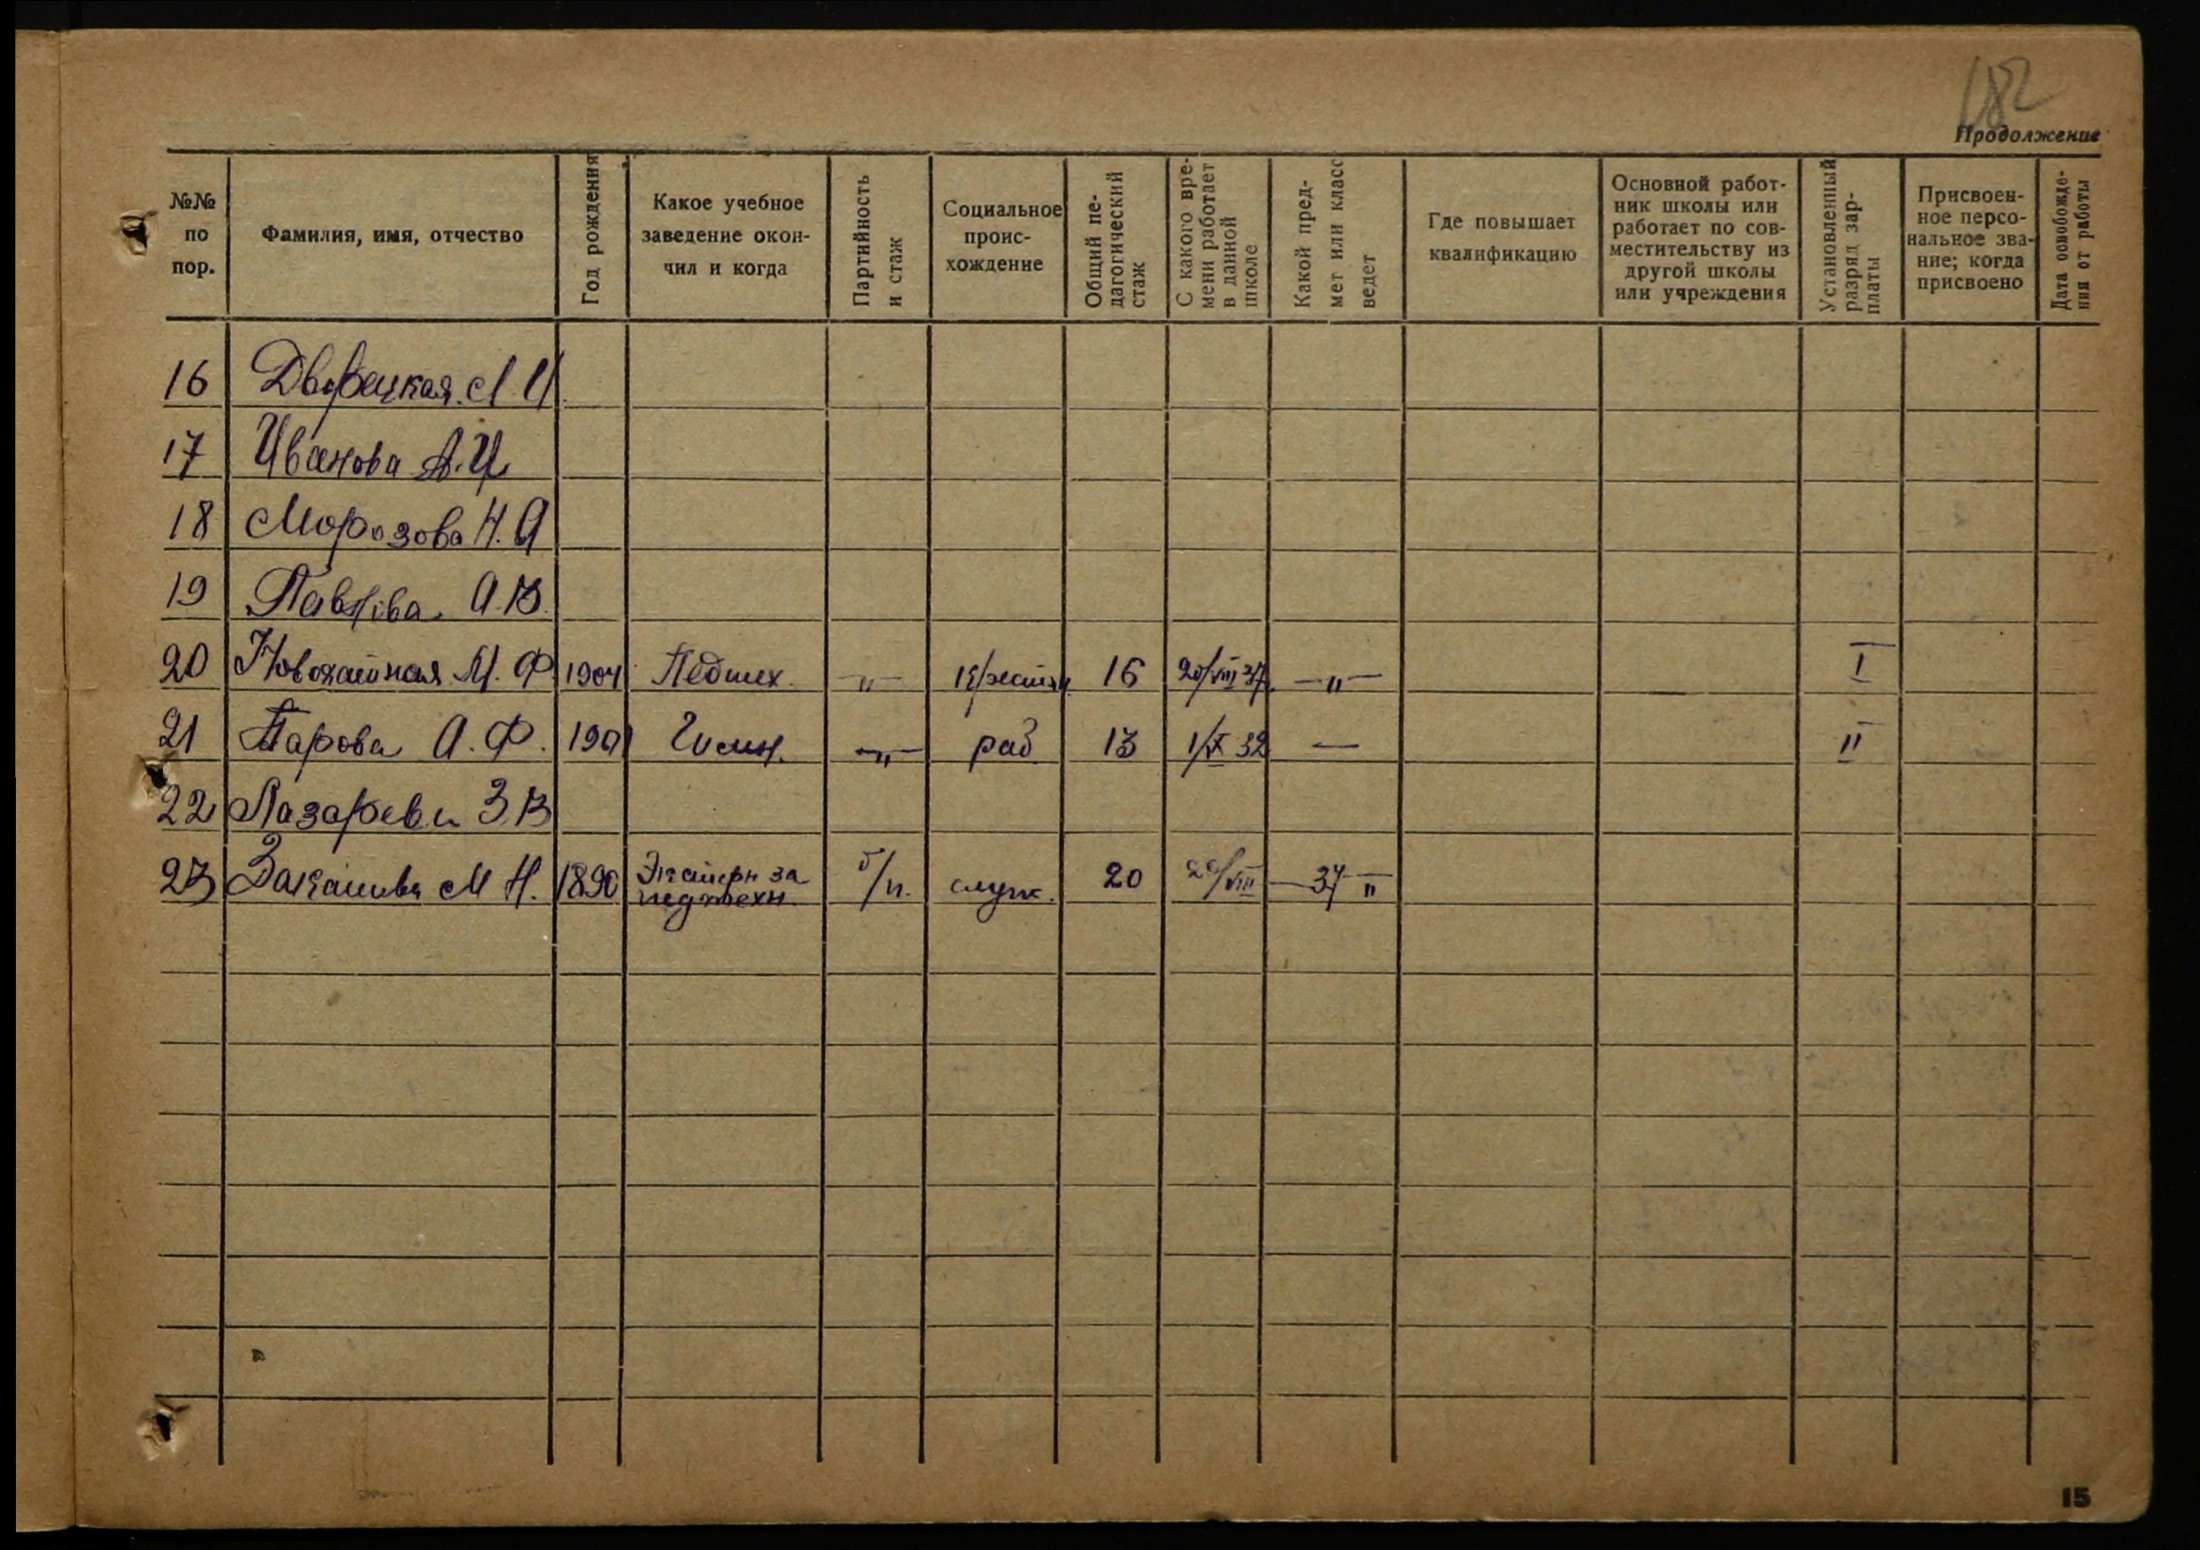 182
Продолжение
№№ по пор.
Фамилия, имя, отчество
Год рождения
Какое учебное заведение окончил и когда
Партийность и стаж
Социальное происхождение
Общий педагогический стаж
С какого времени работает в данной школе
Какой предмет или класс ведет
Где повышает квалификацию
Основной работник школы или работает по совместительству из другой школы или учреждения
Установленный разряд зарплаты
Присвоенное персональное звание; когда присвоено
Дата освобождения от работы
16 Дворецкая Л. И.
17 Иванова А. И.
18 Морозова Н. А
19 Павлова А. В.
20 М. Ф 1904 Педтех. —"— 16 20/VIII 37 —"— I
21 Парова А. Ф. 1901 Гимн. —"— раб 13 1/IX 32 — II
22 Лазарева З. В
23 М Н. 1890 педтехн. б/п. служ. 20 20/VIII — 37 "
15